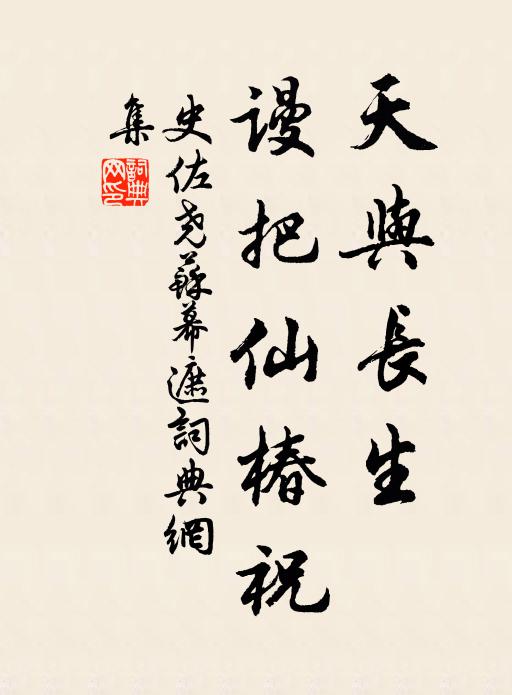 天與長生
謾把仙椿祝
史佐堯蘇幕遮詞典網
集
詞典網印